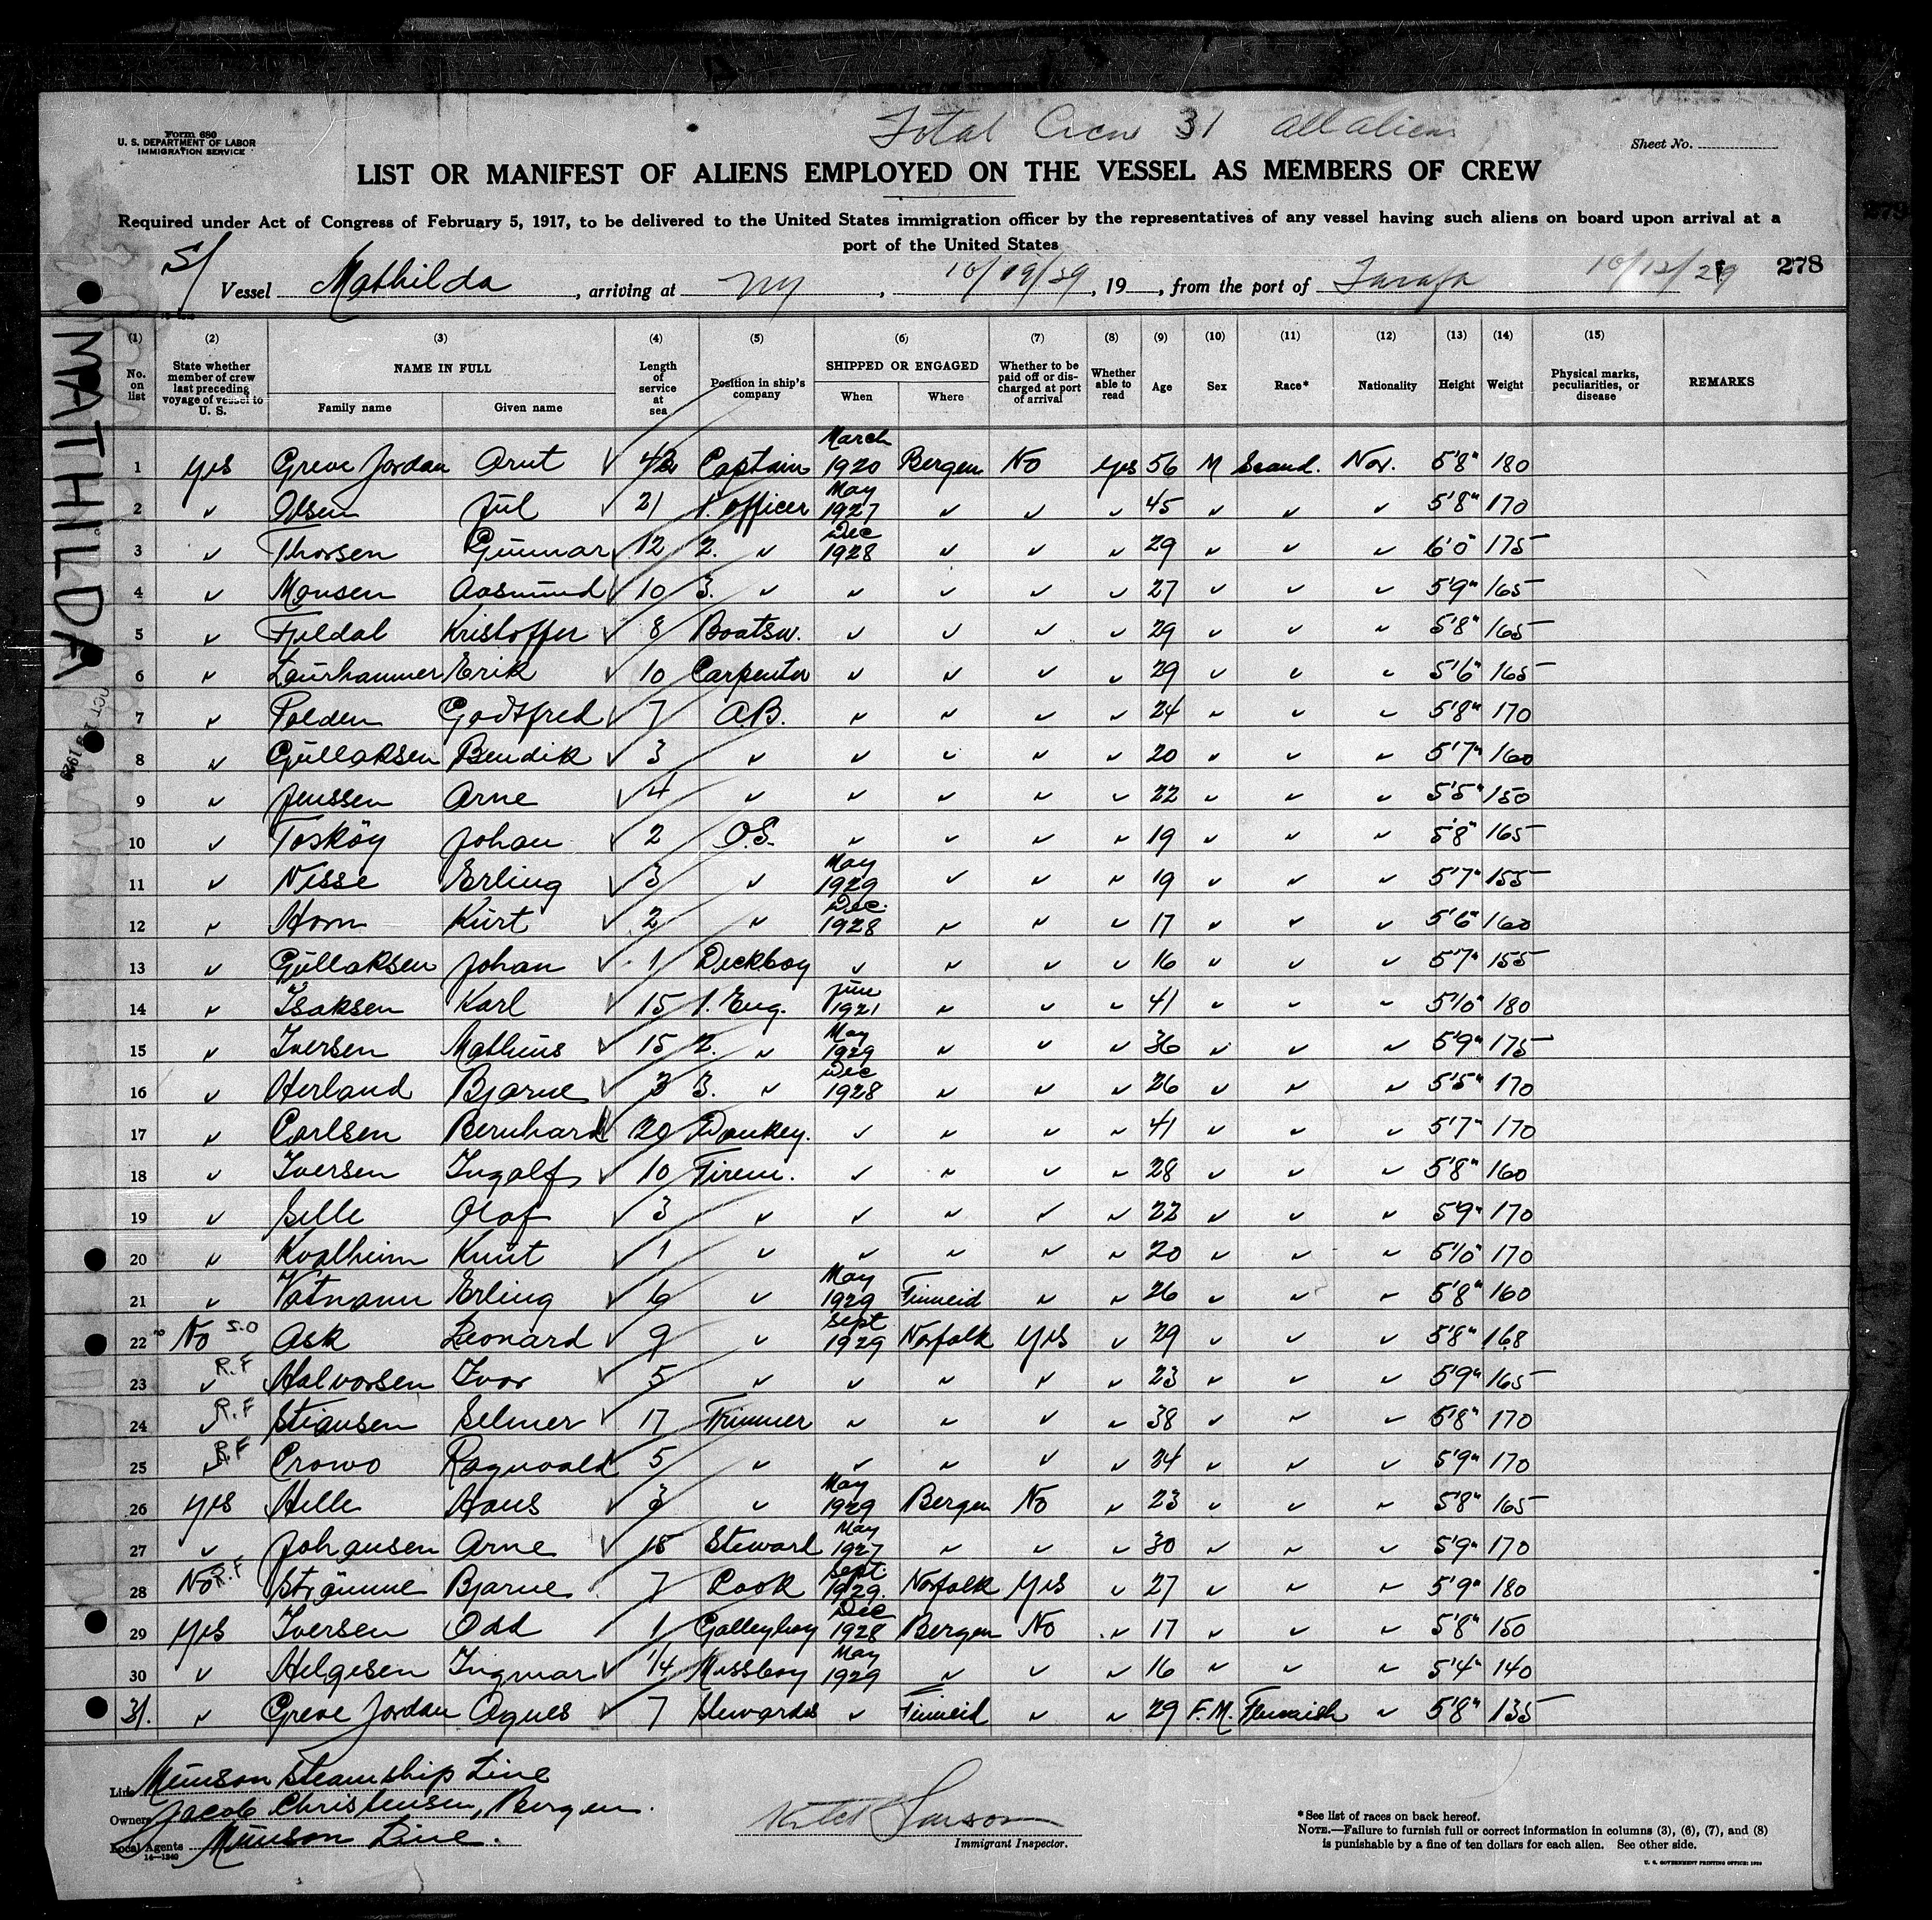 Total Crew 31 all aliens
Form 680
U. S. DEPARTMENT OF LABOR
IMMIGRATION SERVICE
Sheet No.
LIST OR MANIFEST OF ALIENS EMPLOYED ON THE VESSEL AS MEMBERS OF CREW
Required under Act of Congress of February 5, 1917, to be delivered to the United States immigration officer by the representatives of any vessel having such aliens on board upon arrival at a
port of the United States
S/ Vessel Mathilda, arriving at NY, 10/19/29, 19, from the port of Tarafa 10/12/29 278
MATHILDA
(1) (2) (3) (4) (5) (6) (7) (8) (9) (10) (11) (12) (13) (14) (15)
No. on list State whether member of crew last preceding voyage of vessel to U. S. NAME IN FULL Family name Given name Length of service at sea Position in ship's company SHIPPED OR ENGAGED When Where Whether to be paid off or discharged at port of arrival Whether able to read Age Sex Race* Nationality Height Weight Physical marks, peculiarities, or disease REMARKS
1 Yes Greve Jordan Arnt ✓ Captain March 1920 Bergen No Yes 56 M Scand. Nor. 5'8" 180
2 ✓ Olsen Jul ✓ 21 1. officer May 1927 ✓ ✓ ✓ 45 ✓ ✓ ✓ 5'8" 170
3 ✓ Thorsen Gunnar ✓ 12 2. ✓ Dec 1928 ✓ ✓ ✓ 29 ✓ ✓ ✓ 6'0" 175
4 ✓ Monsen Aasmund ✓ 10 3. ✓ ✓ ✓ ✓ ✓ 27 ✓ ✓ ✓ 5'9" 165
5 ✓ Fjeldal Kristoffer ✓ 8 Boatsw. ✓ ✓ ✓ ✓ 29 ✓ ✓ ✓ 5'8" 165
6 ✓ Laurhammer Erik ✓ 10 Carpenter ✓ ✓ ✓ ✓ 29 ✓ ✓ ✓ 5'6" 165
7 ✓ Polden Godtfred ✓ 7 A.B. ✓ ✓ ✓ ✓ 24 ✓ ✓ ✓ 5'8" 170
8 ✓ Gullaksen Bendik ✓ 3 ✓ ✓ ✓ ✓ ✓ 20 ✓ ✓ ✓ 5'7" 160
9 ✓ Jenssen Arne ✓ 4 ✓ ✓ ✓ ✓ ✓ 22 ✓ ✓ ✓ 5'5" 150
10 ✓ Toskøy Johan ✓ 2 O.S. ✓ ✓ ✓ ✓ 19 ✓ ✓ ✓ 5'8" 165
11 ✓ Nesse Erling ✓ 3 ✓ May 1929 ✓ ✓ ✓ 19 ✓ ✓ ✓ 5'7" 155
12 ✓ Horn Kurt ✓ 2 ✓ Dec. 1928 ✓ ✓ ✓ 17 ✓ ✓ ✓ 5'6" 160
13 ✓ Gullaksen Johan ✓ 1 Deckboy ✓ ✓ ✓ ✓ 16 ✓ ✓ ✓ 5'7" 155
14 ✓ Isaksen Karl ✓ 15 1. Eng. June 1921 ✓ ✓ ✓ 41 ✓ ✓ ✓ 5'10" 180
15 ✓ Iversen Mathius ✓ 15 2. ✓ May 1929 ✓ ✓ ✓ 36 ✓ ✓ ✓ 5'9" 175
16 ✓ Herland Bjarne ✓ 3 3. ✓ Dec 1928 ✓ ✓ ✓ 26 ✓ ✓ ✓ 5'5" 170
17 ✓ Carlsen Bernhard ✓ 20 Donkey. ✓ ✓ ✓ ✓ 41 ✓ ✓ ✓ 5'7" 170
18 ✓ Iversen Ingolf ✓ 10 Firem. ✓ ✓ ✓ ✓ 28 ✓ ✓ ✓ 5'8" 160
19 ✓ Selle Olaf ✓ 3 ✓ ✓ ✓ ✓ ✓ 22 ✓ ✓ ✓ 5'9" 170
20 ✓ Kvalheim Knut ✓ 1 ✓ ✓ ✓ ✓ ✓ 20 ✓ ✓ ✓ 5'10" 170
21 ✓ Vatnann Erling ✓ 6 ✓ May 1929 Finneid ✓ ✓ 26 ✓ ✓ ✓ 5'8" 160
22 No S.O Ask Leonard ✓ 9 ✓ Sept 1929 Norfolk Yes ✓ 29 ✓ ✓ ✓ 5'8" 168
23 ✓ R.F Halvorsen Ivor ✓ 5 ✓ ✓ ✓ ✓ ✓ 23 ✓ ✓ ✓ 5'9" 165
24 ✓ R.F Stiansen Selmer ✓ 17 Trimmer ✓ ✓ ✓ ✓ 38 ✓ ✓ ✓ 5'8" 170
25 ✓ R.F Crowo Ragnvald 5 ✓ ✓ ✓ ✓ ✓ 34 ✓ ✓ ✓ 5'9" 170
26 Yes Hille Hans ✓ 3 ✓ May 1929 Bergen No ✓ 23 ✓ ✓ ✓ 5'8" 165
27 ✓ Johansen Arne ✓ 15 Steward May 1927 ✓ ✓ ✓ 30 ✓ ✓ ✓ 5'9" 170
28 No R.F Strømme Bjarne ✓ 7 Cook Sept. 1929. Norfolk Yes ✓ 27 ✓ ✓ ✓ 5'9" 180
29 Yes Iversen Odd ✓ 1 Galleyboy Dec 1928 Bergen No ✓ 17 ✓ ✓ ✓ 5'8" 150
30 ✓ Helgesen Ingmar ✓ 1/4 Messboy May 1929 ✓ ✓ ✓ 16 ✓ ✓ ✓ 5'4" 140
31. ✓ Greve Jordan Agnes ✓ 7 Stewardes ✓ Finneid ✓ ✓ 29 F.M. Finnish ✓ 5'8" 135
Line Munson Steamship Line
Owners Jacob Christensen, Bergen.
Local Agents Munson Line.
14—1240
Immigrant Inspector.
*See list of races on back hereof.
NOTE.—Failure to furnish full or correct information in columns (3), (6), (7), and (8)
is punishable by a fine of ten dollars for each alien. See other side.
U. S. GOVERNMENT PRINTING OFFICE: 1929